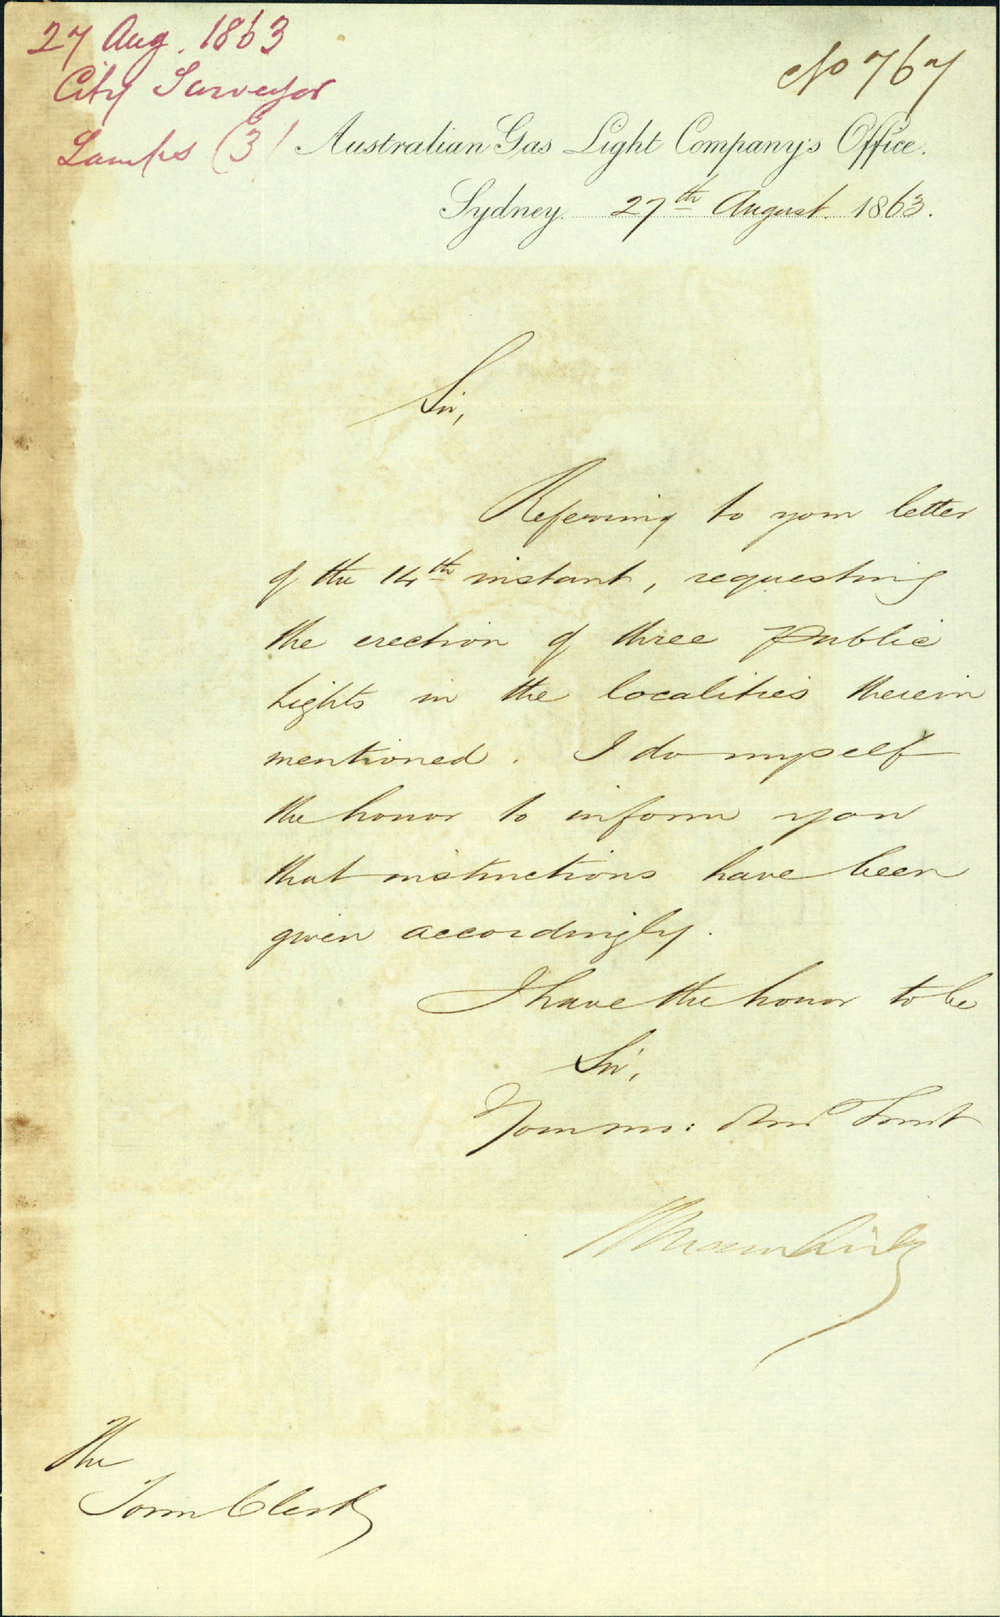 27 Aug. 1863
City Surveyor
Lamps (3)
No 767
Australian Gas Light Company's Office.
Sydney. 27th August 1863.
Sir,
Referring to your letter
of the 14th instant, requesting
the erection of three Public
Lights in the localities therein
mentioned. I do myself
the honor to inform you
that instructions have been
given accordingly.
I have the honor to be
Sir,
Your mo: Obed Servt
The
Town Clerk